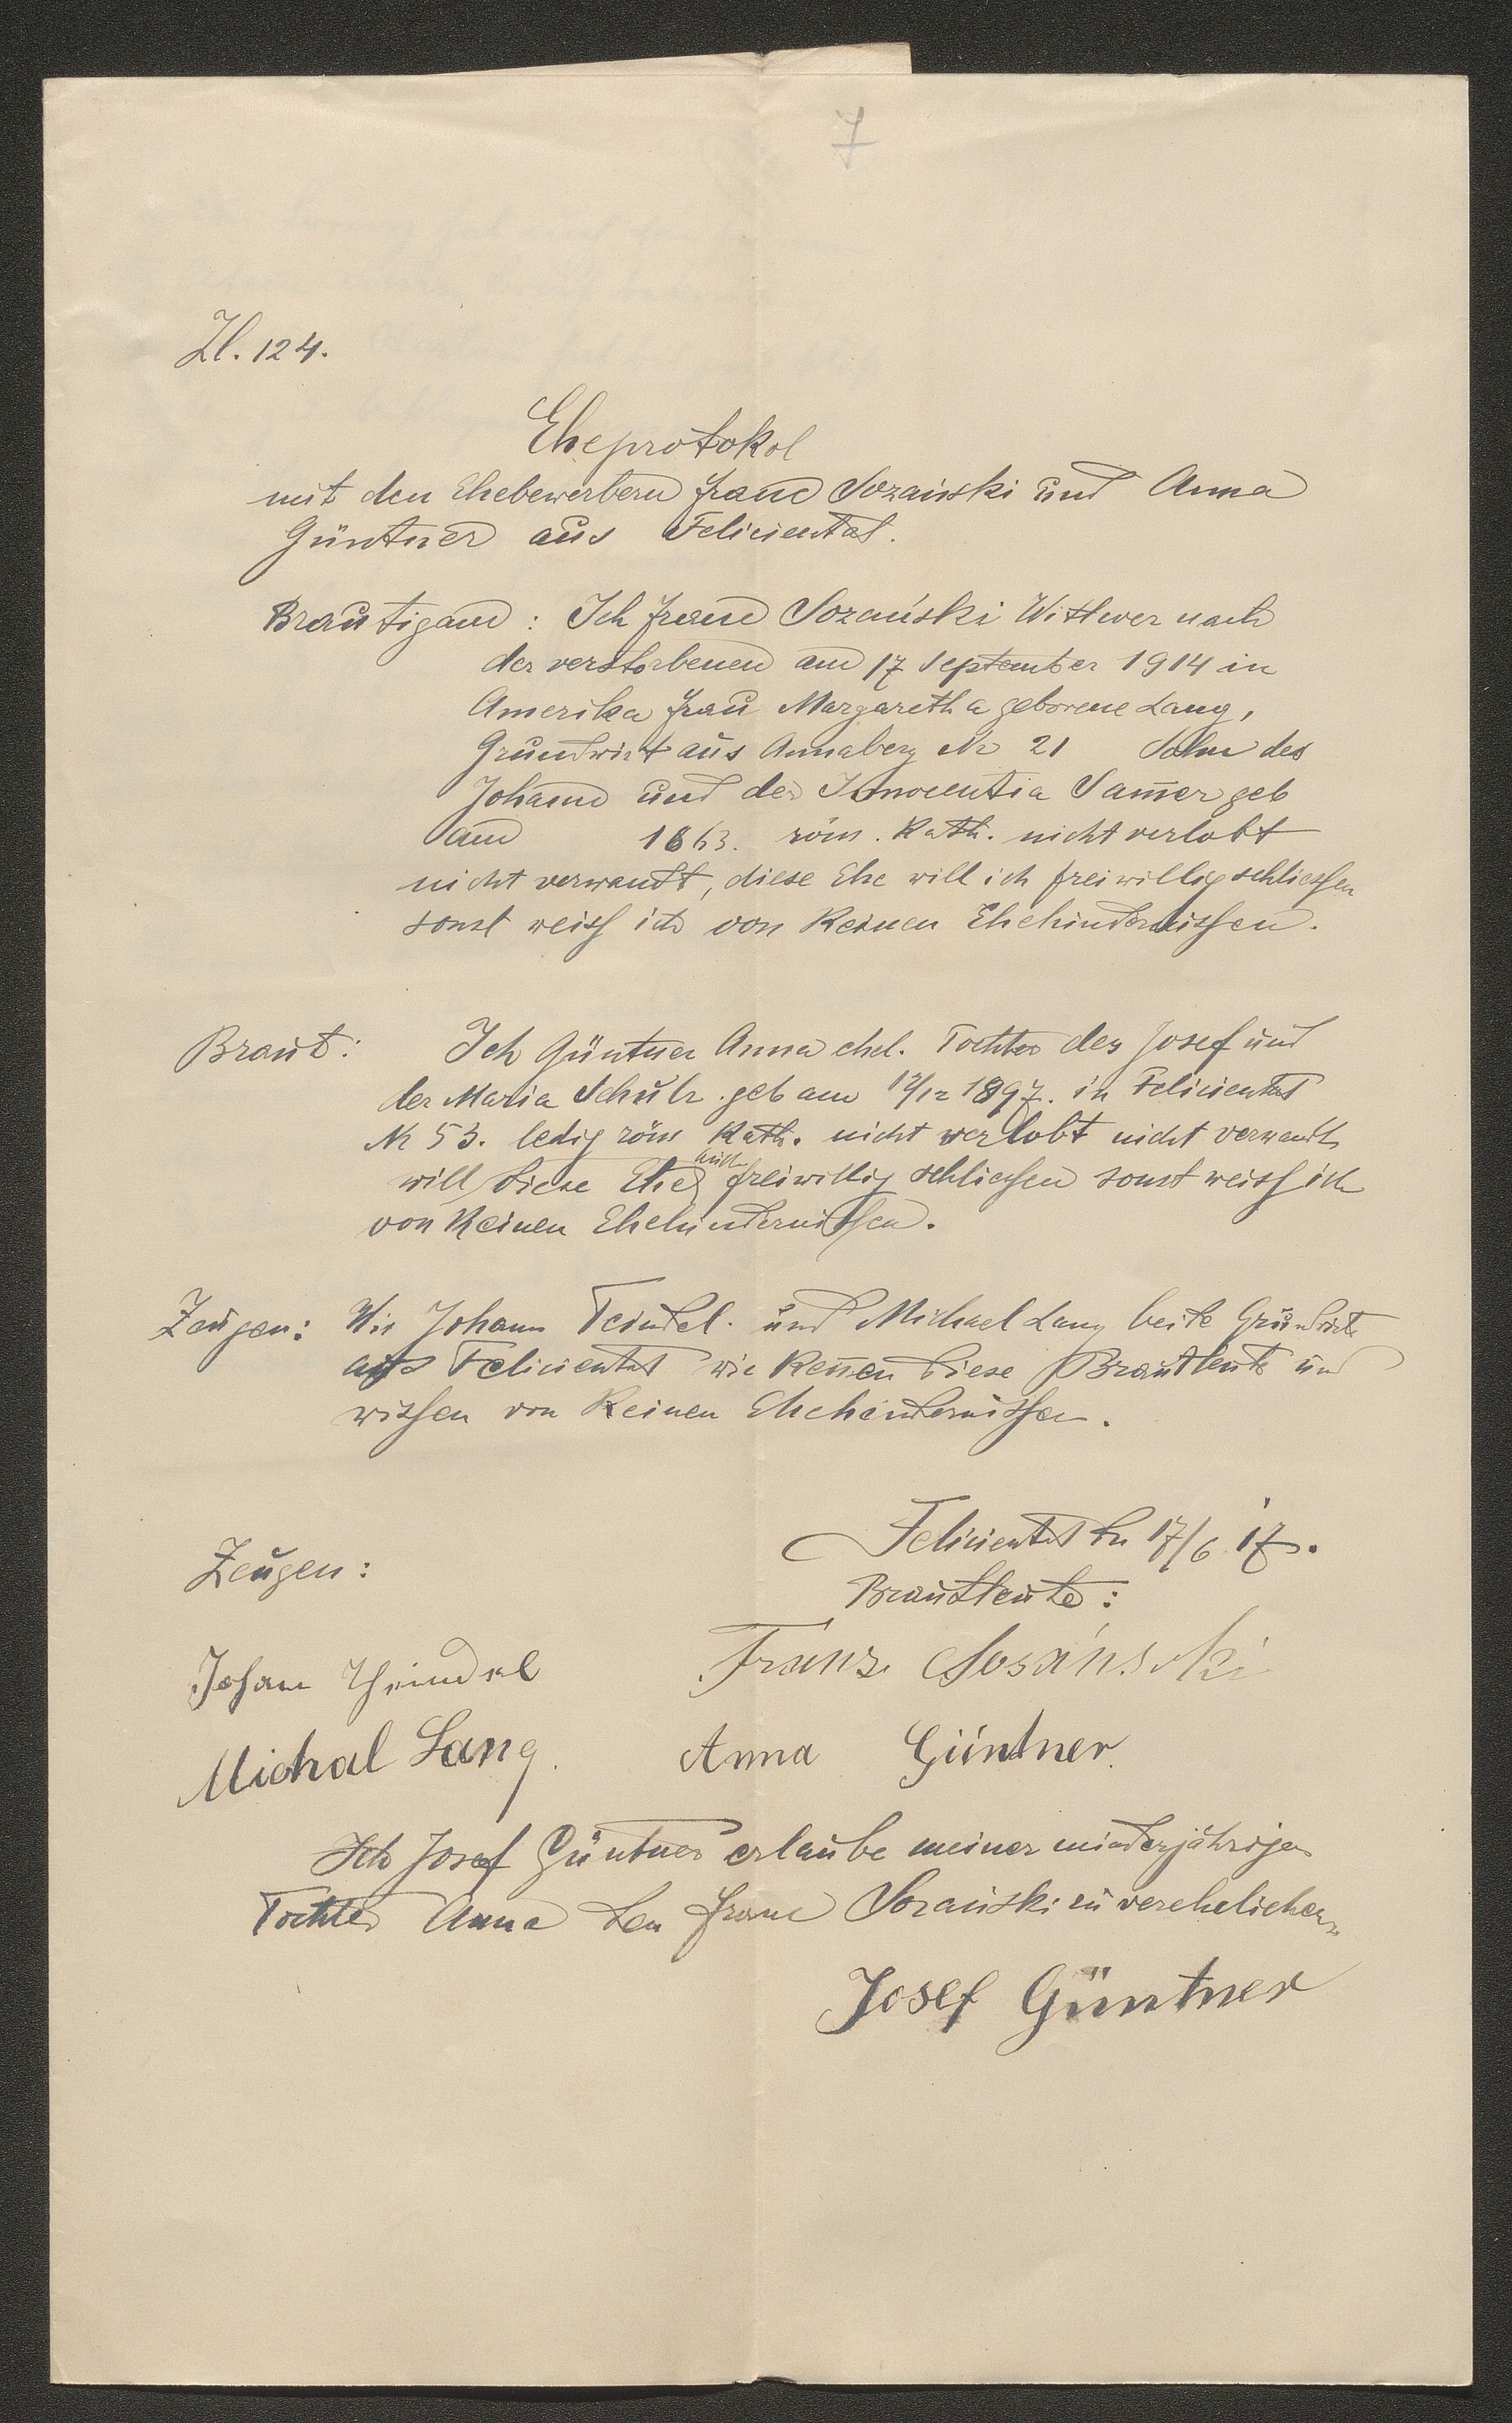 7
Zl. 124.
Eheprotokol
mit den Ehebewerbern Franc Sozański und Anna
Güntner aus Feliciental.
Bräutigam: Ich Franc Sozański Wittwer nach
der verstorbenen am 17 September 1914 in
Amerika Frau Margaretha geborene Lang,
Grundwirt aus Annaberg Nr 21 Sohn des
Johann und der Innocentia Sam̅er geb
am 1863. röm. Kath. nicht verlobt
nicht verwandt, diese Ehe will ich freiwillig schliessen
sonst weiss ich von Keinen Ehehindernissen.
Braut: Ich Güntner Anna ehel. Tochter des Josef und
der Maria Schulz geb am 12/12 1897. in Feliciental
Nr 53. ledig röm Kath. nicht verlobt nicht verwandt
will diese Ehe freiwillig schliessen sonst weiss ich
von Keinen Ehehindernissen.
Zeugen: Wir Johann Teindel. und Michael Lang beide Grundwirte
aus Feliciental wir Ken̅en diese Brautleute und
wissen von Keinen Ehehindernissen.
Feliciental den 17/6 17.
Zeugen:
Brautleute:
Johan Theindel
Franz Sosánski
Michal Lang.
Anna Güntner.
Ich Josef Güntner erlaube meiner minderjährigen
Tochter Anna den Franc Sozański zu verehelichen
Josef Güntner